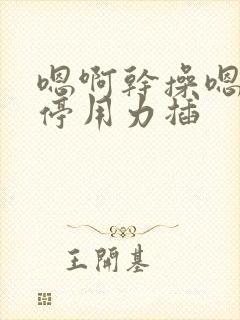 嗯啊幹操嗯
停用力插
王開基